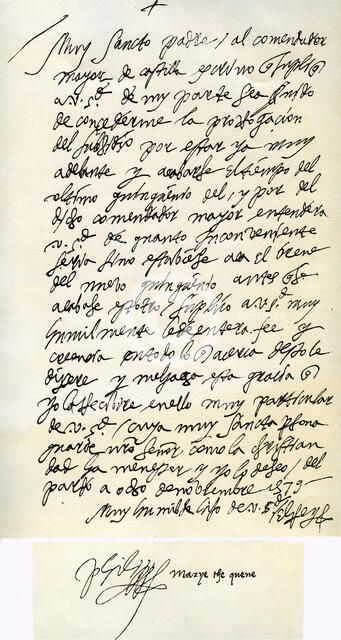 Muy Sancto padre / al comendador
mayor de castilla escrivo q suplique
a v. s.d de my parte sea servido
de concederme la prorrogacion
del subsidio por estar ya muy
adelante y acabarse el tiempo del
ultimo quinquenio del, y por del
dicho comendador mayor entendera
v. s.d de quanto Inconveniente
seria sino estubiese aca el breve
del nuevo quinquenio antes q se
acabase estotro / suplico a v. s.d muy
humilmente le de entera fee y
creencia en todo lo q acerca desto le
dixere y me haga esta gracia q
yo la recibire en ello muy particular
de v. s.d / cuya muy Sancta persona
guarde nro Señor como la christian
dad ha menester y yo lo deseo / del
pardo a ocho de noviembre 1579
Muy humilde hijo de v. s.d
el Rey
Philipp marye the quene